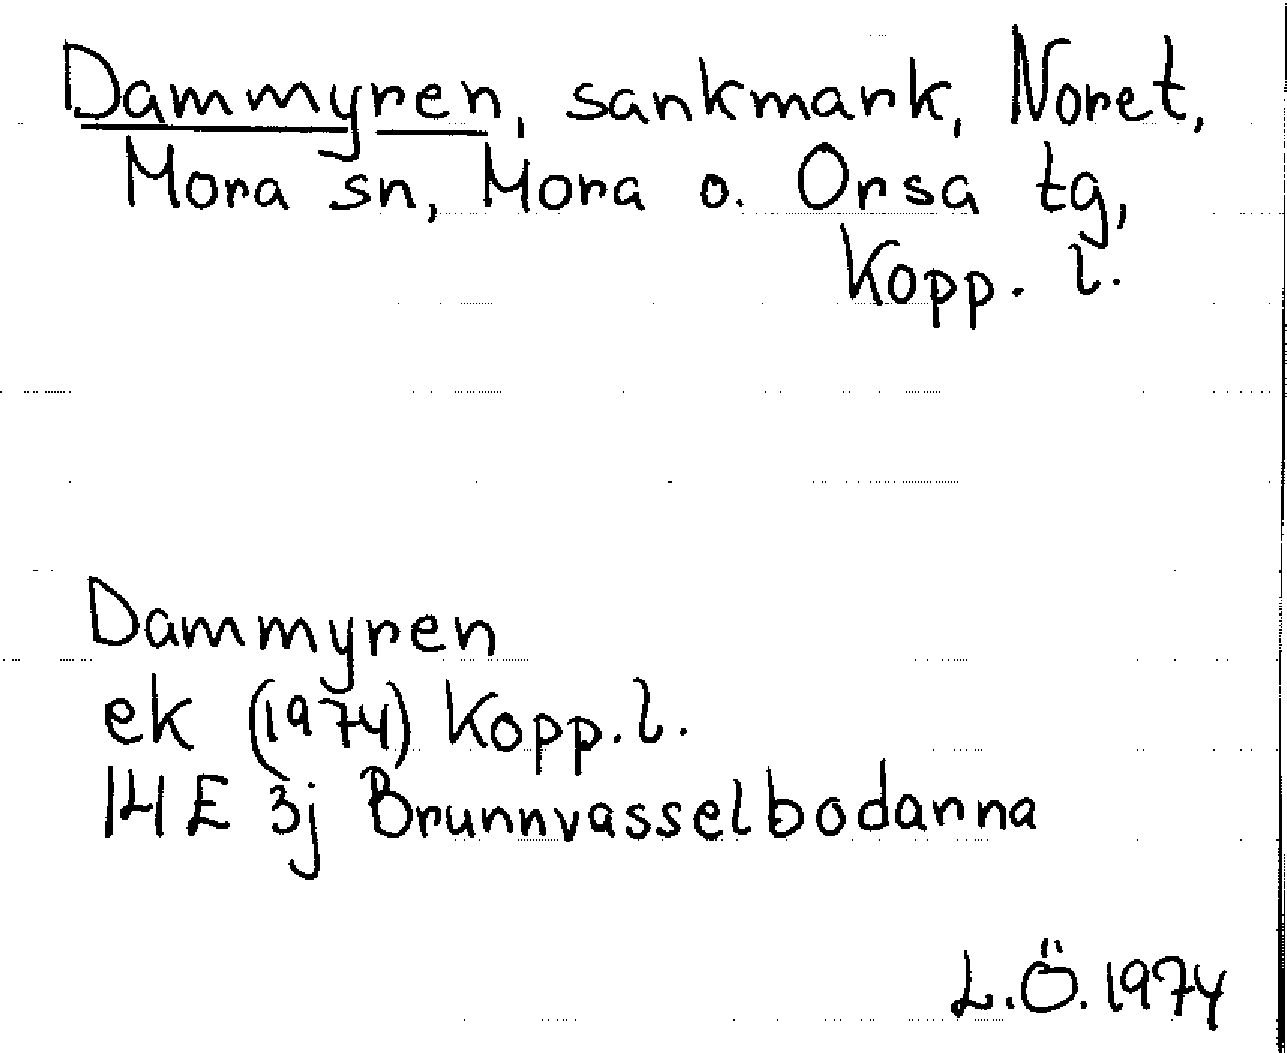 Dammyren, sankmark, Noret,
Mora sn, Mora o. Orsa tg,
Kopp. l.
Dammyren
ek (1974) Kopp. l.
14E 3j Brunnvasselbodarna
L.Ö. 1974